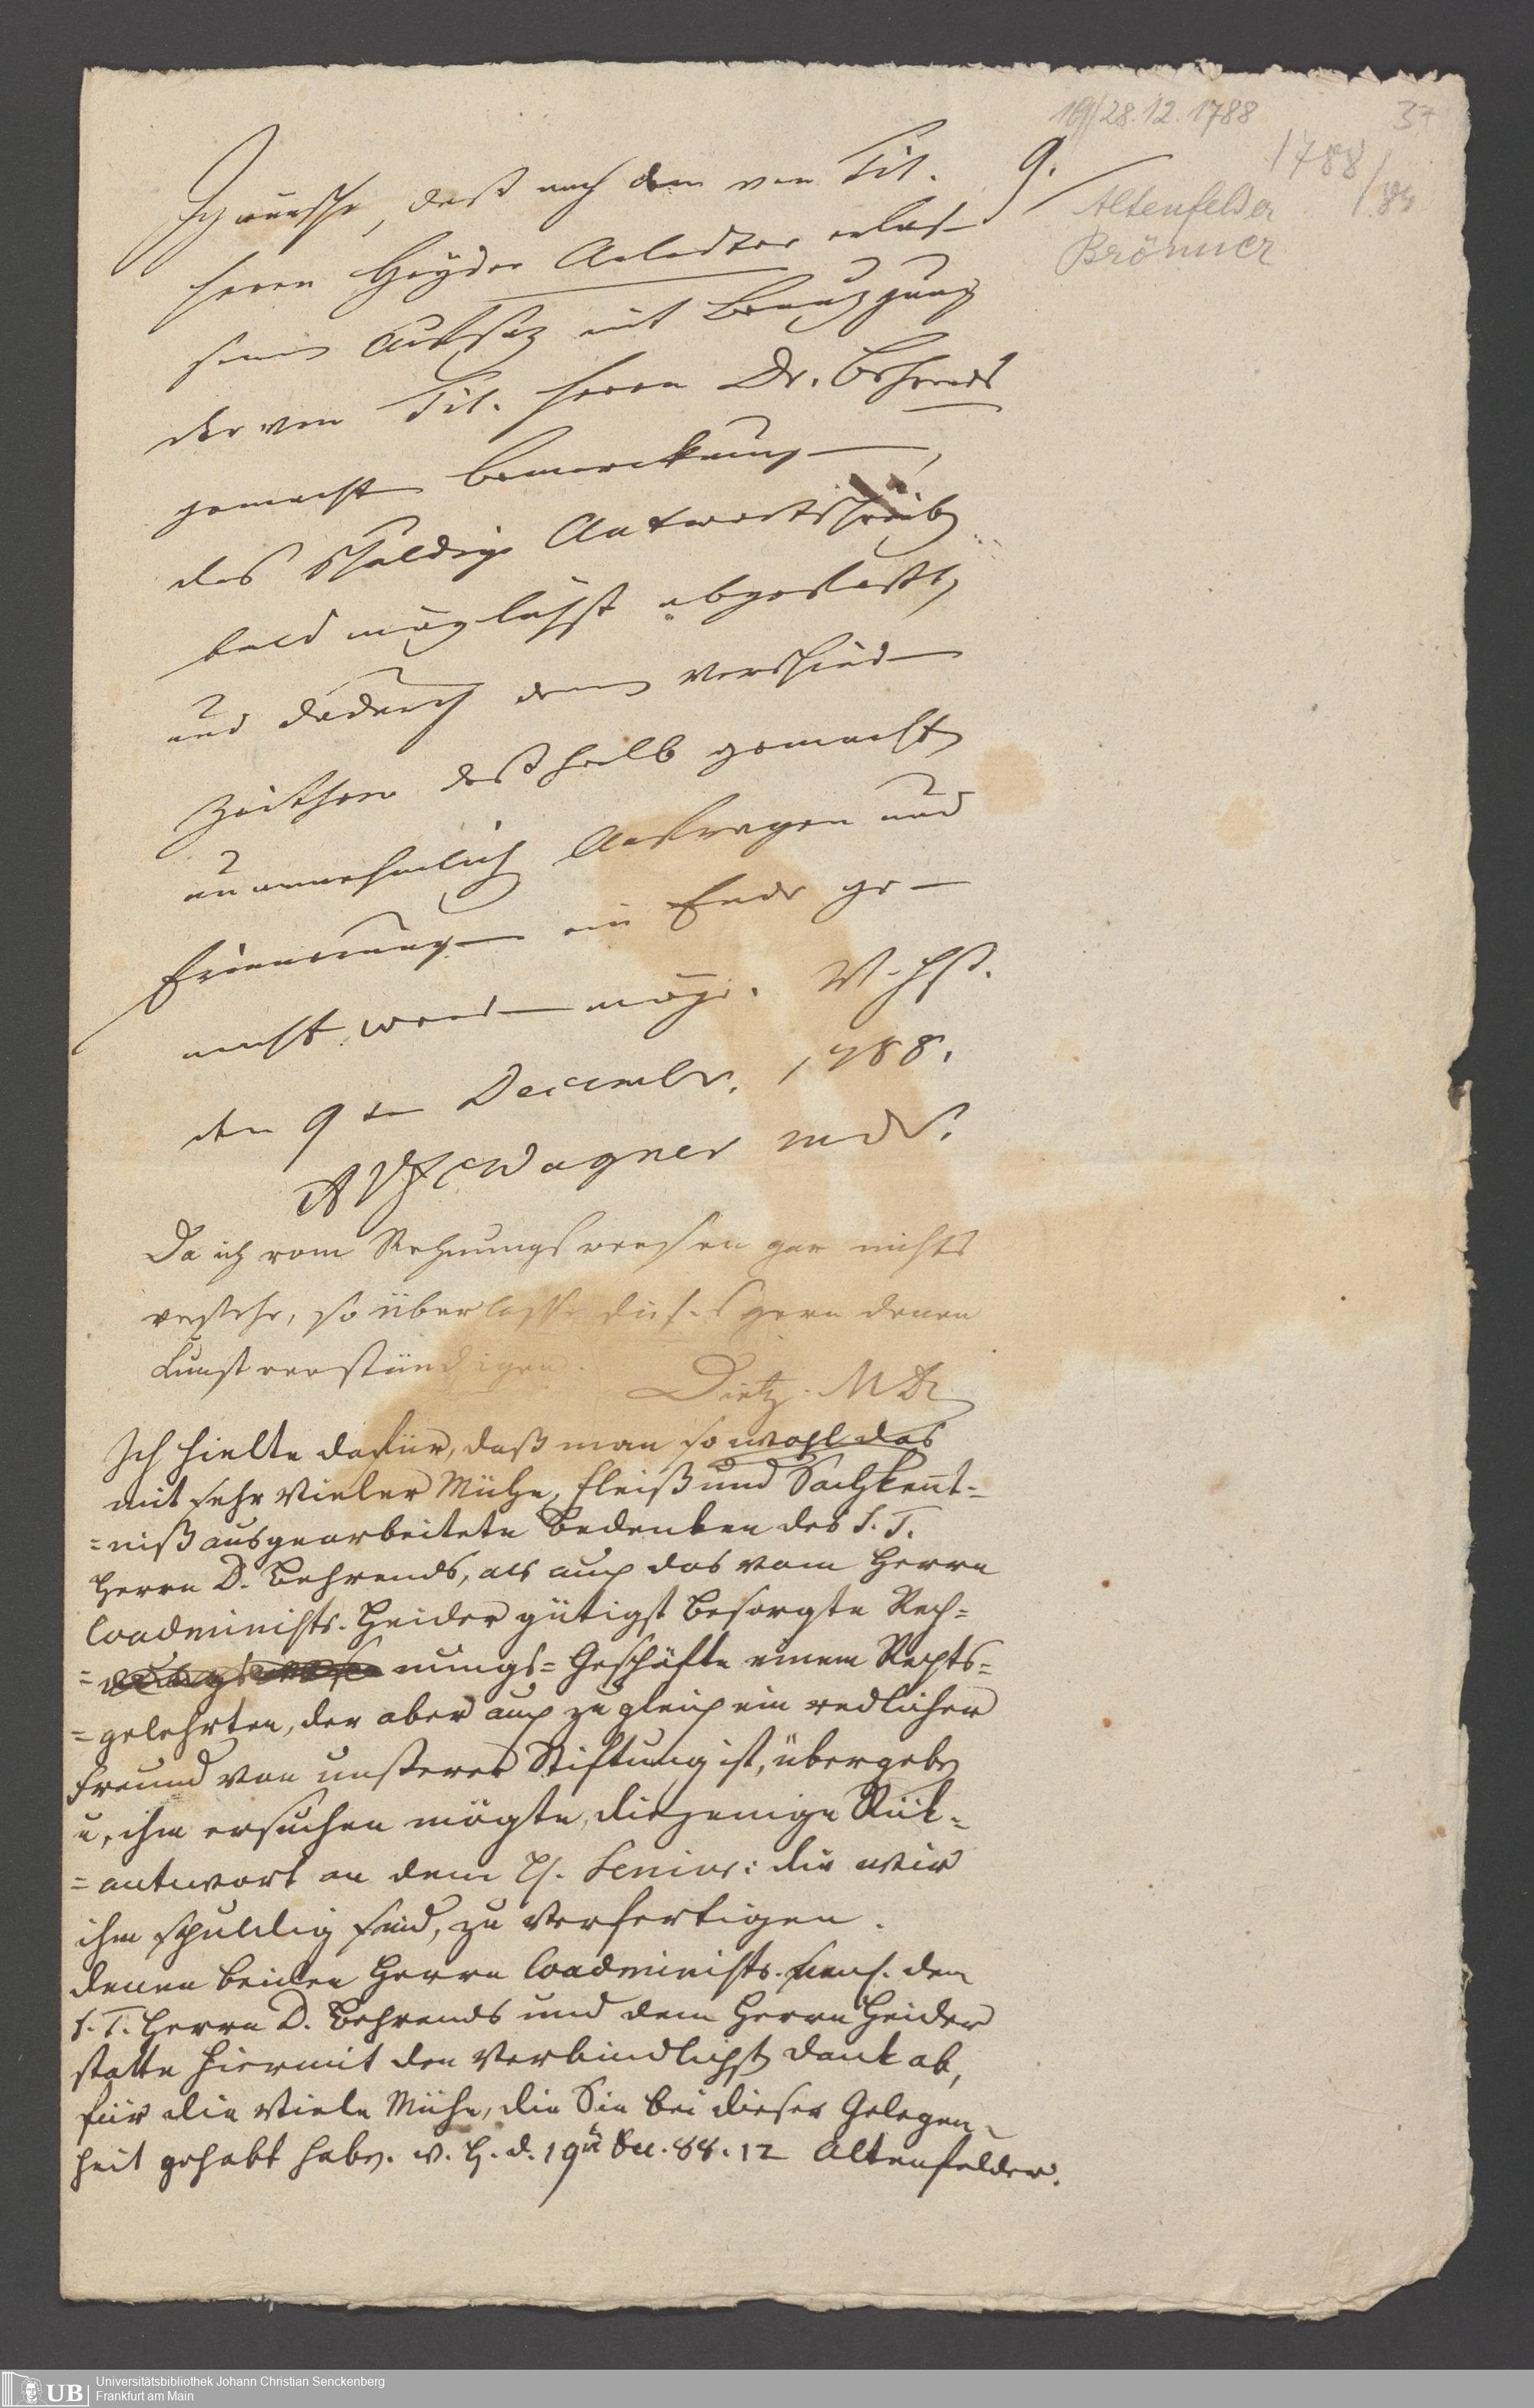 19/28.12.1788
37
1788/89
Altenfelder
Brönner
9.
Ich wünsche, daß nach dem von Tit.
Herrn Heyder
seinen Aufsaz mit Benuzzung
der von Tit. Herrn Dr. Behrends
gemachten Bemerckungen,
das schuldige Antwortschreiben
bald möglichst abgefasst,
und dadurch denen verschieden
zeither deßhalb gemachten
unannehmlichen Anfragen und
Erinnerungen ein Ende ge-
macht werden möge. V. Hß.
den 9ten December. 1788.
Wagner mdr.
Da ich vom Rechnungswesen gar nichts
verstehe, so überlasse dieses gern denen
Kunstverständigen.
Dietz. MDr
Ich hielte dafür, daß man so wohl das
mit sehr vieler Mühe, Fleiß und Sachkent-
=niß ausgearbeitete Bedenken des S. T.
Herrn D. Behrends, als auch das vom Herrn
Coadministr. Heider gütigst besorgte Rech=
= nungs= Geschäfte einem Rechts=
=gelehrten, der aber auch zugleich ein redlicher
Freund von unserer Stiftung ist, übergeben
u, ihm ersuchen mögte, diejenige Rük=
=antwort an dem H. Senior: die wir
ihm schuldig sind, zu verfertigen.
denen beiden Herrn Coadministr. dem
S. T. Herrn D. Behrends und dem Herrn Heider
statte hiermit den verbindlichsten dank ab,
für die viele Mühe, die Sie bei dieser Gelegen-
heit gehabt haben. v. H. d. 19n Dec. 88. 12 Altenfelder.
UB
Universitätsbibliothek Johann Christian Senckenberg
Frankfurt am Main